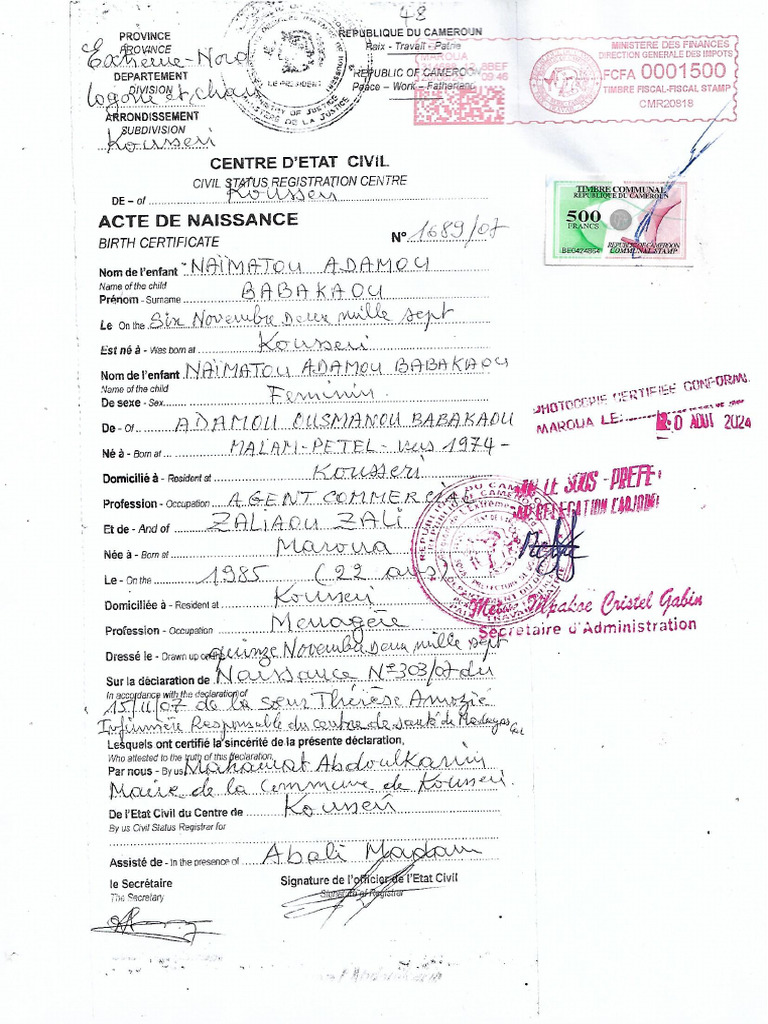 48
PROVINCE
PROVINCE
Extrême-Nord
DEPARTEMENT
DIVISION
Logone et chari
ARRONDISSEMENT
SUBDIVISION
Kousseri
REPUBLIQUE DU CAMEROUN
Paix - Travail - Patrie
REPUBLIC OF CAMEROON
Peace – Work – Fatherland
LE PRESIDENT
MINISTRY OF JUSTICE
MINISTERE DE LA JUSTICE
MAROUA
09 46
MINISTERE DES FINANCES
DIRECTION GENERALE DES IMPOTS
FCFA 0001500
TIMBRE FISCAL-FISCAL STAMP
CMR20818
CENTRE D'ETAT CIVIL
CIVIL STATUS REGISTRATION CENTRE
DE – of Kousseri
TIMBRE COMMUNAL
REPUBLIQUE DU CAMEROUN
500
FRANCS
REPUBLIC OF CAMEROON
COMMUNAL STAMP
ACTE DE NAISSANCE
BIRTH CERTIFICATE N° 1689/07
Nom de l'enfant NAÏMATOU ADAMOU
Name of the child
BABAKAOU
Prénom - Surname
Le On the Six Novembre deux mille sept
Est né à - Was born at Kousseri
Nom de l'enfant NAÏMATOU ADAMOU BABAKAOU
Name of the child
De sexe - Sex Feminin
De - Of ADAMOU OUSMANOU BABAKAOU
Né à - Born at MALAM-PETEL - vers 1974 -
Domicilié à - Resident at Kousseri
Profession - Occupation AGENT COMMERCIAL
Et de - And of ZALIAOU ZALI
Née à - Born at Maroua
Le - On the 1985 (22 ans)
Domiciliée à - Resident at Kousseri
Profession - Occupation Menagère
Dressé le - Drawn up on the quinze Novembre deux mille sept
Sur la déclaration de Naissance N° 303/07 du
In accordance with the declaration of
15/11/07 de la soeur Thérèse
Infirmière Responsable du centre de santé de
Lesquels ont certifié la sincérité de la présente déclaration,
Who attested to the truth of this declaration,
Par nous - By us Mahamat Abdoulkarim
Maire de la Commune de Kousseri
De l'Etat Civil du Centre de Kousseri
By us Civil Status Registrar for
Assisté de - In the presence of Abali Madam
le Secrétaire
The Secretary
Signature de l'officier de l'Etat Civil
Signature of Registrar
PHOTOCOPIE CERTIFIEE CONFORME
MAROUA LE: 20 AOUT 2024
LE SOUS - PREFET
PAR DELEGATION L'ADJOINT
Cristel Gabin
Secrétaire d'Administration